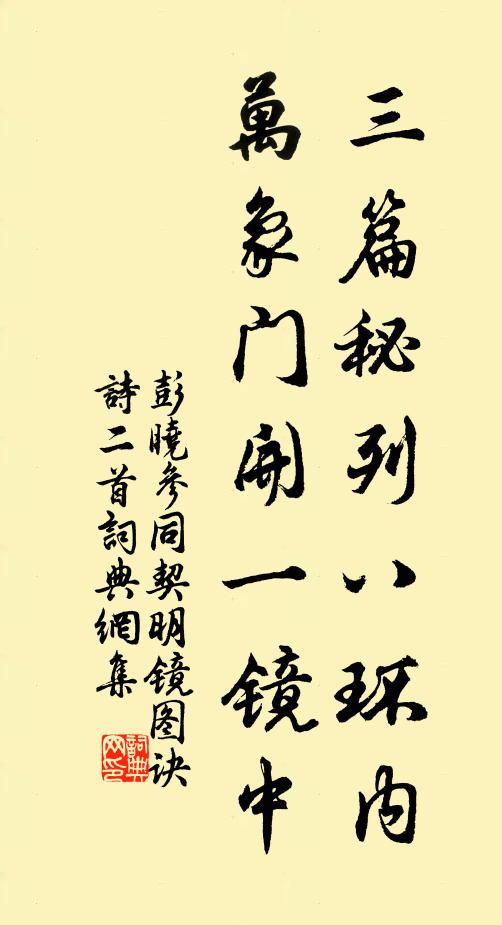 三篇秘列八环内
萬象門開一镜中
彭曉參同契明镜图诀
詩二首詞典網集
詞典
网印